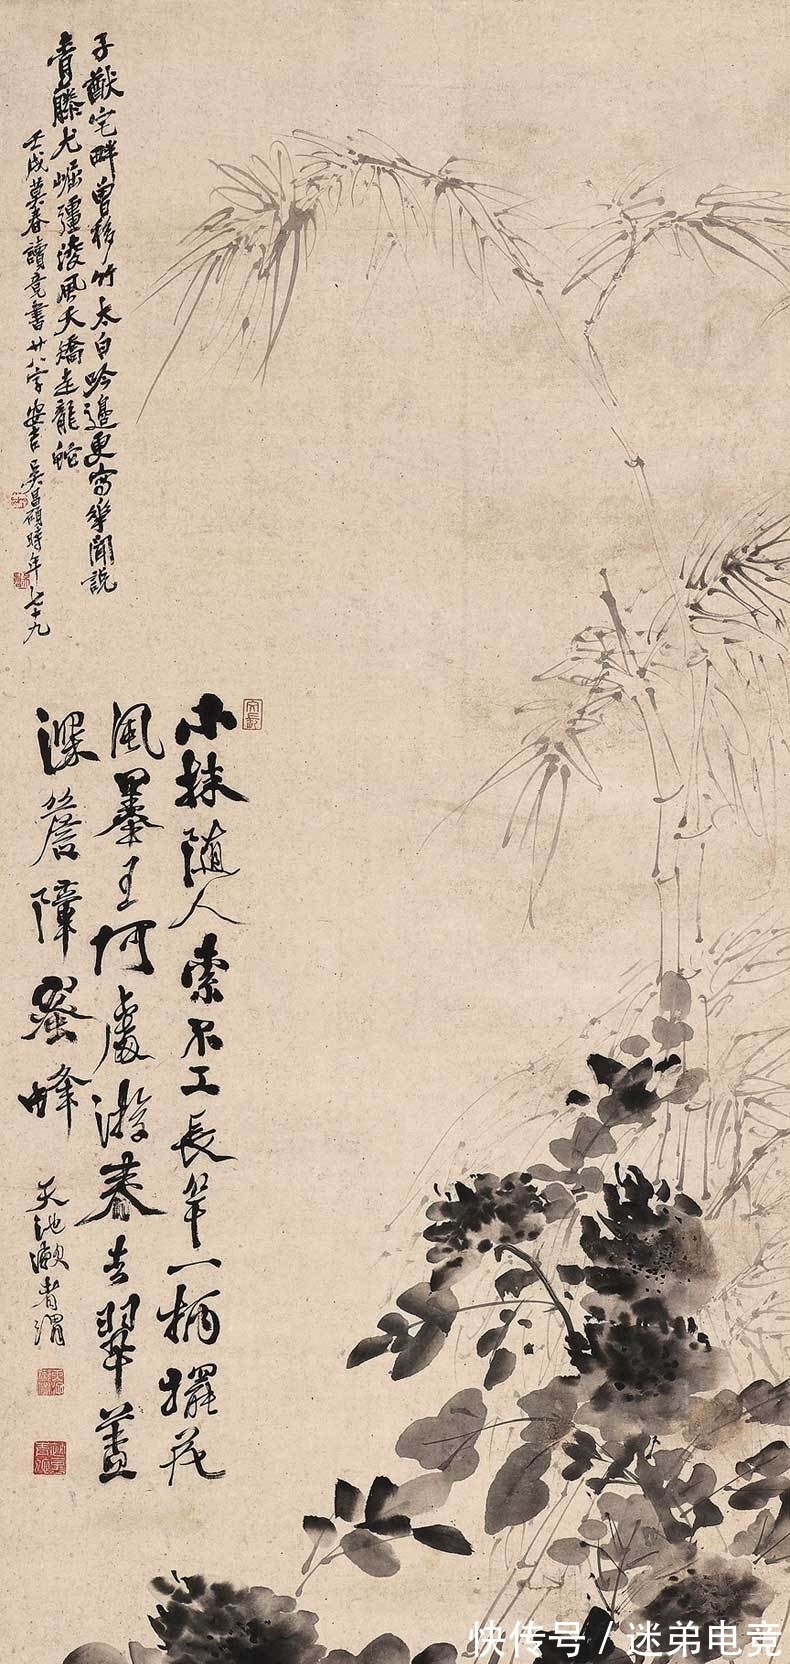 子猷宅畔曾移竹太白吟邊更寫華聞說
青藤尤崛彊淩風夭矯走龍蛇
壬戌莫春讀竟書廿八字安吉吳昌碩時年七十九
文長
小抹隨人索不工長竿一柄擺花
風墨王何處游春去翠蓋
深簷障蜜蜂
天池漱者渭
快传号 / 迷弟电竞